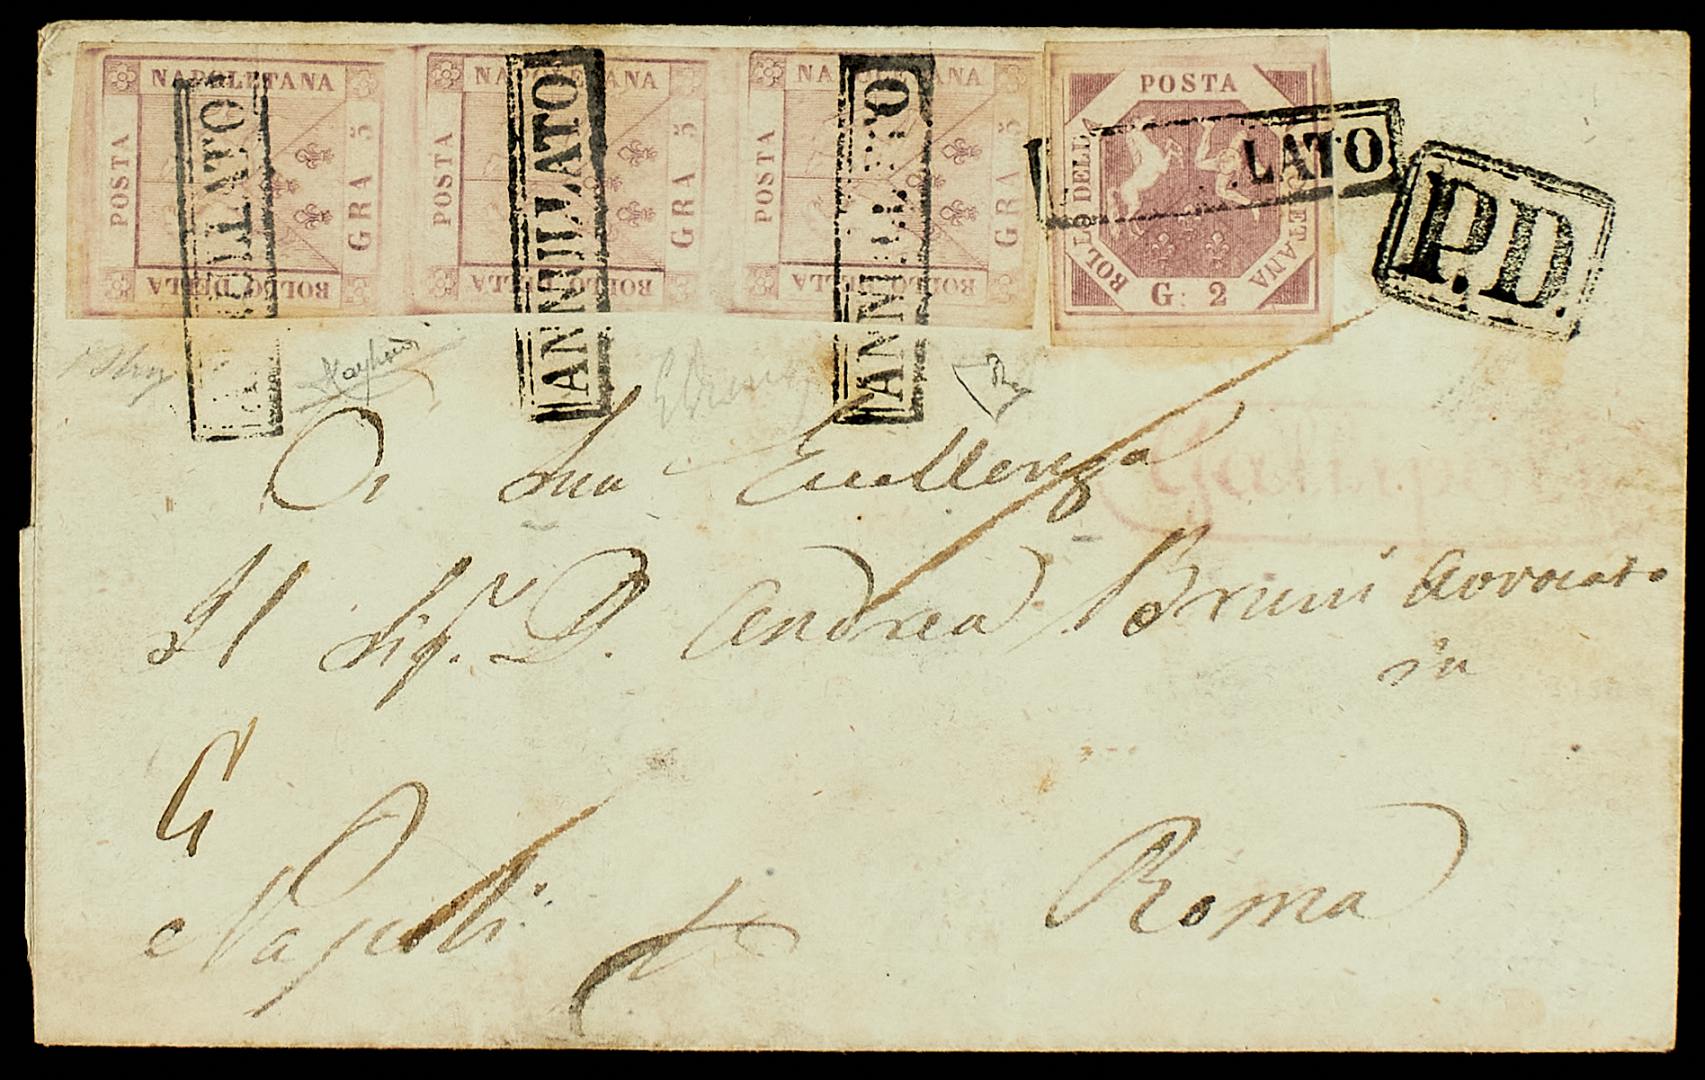 NAPOLETANA NAPOLETANA NAPOLETANA
POSTA GRA 5 POSTA GRA 5 POSTA GRA 5
BOLLO DELLA BOLLO DELLA BOLLO DELLA
POSTA
BOLLO DELLA
NAPOLETANA
G. 2
ANNULLATO ANNULLATO ANNULLATO LATO
P.D.
A Sua Eccellenza
Il Sig.r D. Andrea Bruni Avvocato
in
Napoli p Roma